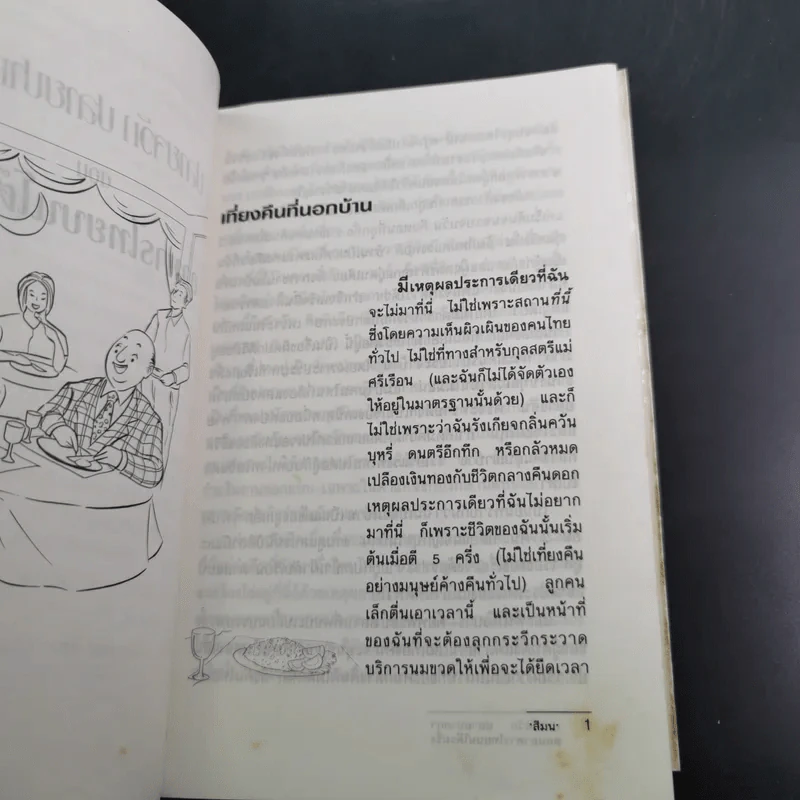 เที่ยงคืนที่นอกบ้าน
มีเหตุผลประการเดียวที่ฉัน
จะไม่มาที่นี่ ไม่ใช่เพราะสถานที่นี้
ซึ่งโดยความเห็นผิวเผินของคนไทย
ทั่วไป ไม่ใช่ที่ทางสำหรับกุลสตรีแม่
ศรีเรือน (และฉันก็ไม่ได้จัดตัวเอง
ให้อยู่ในมาตรฐานนั้นด้วย) และก็
ไม่ใช่เพราะว่าฉันรังเกียจกลิ่นควัน
บุหรี่ ดนตรีอึกทึก หรือกลัวหมด
เปลืองเงินทองกับชีวิตกลางคืนดอก
เหตุผลประการเดียวที่ฉันไม่อยาก
มาที่นี่ ก็เพราะชีวิตของฉันนั้นเริ่ม
ต้นเมื่อตี 5 ครึ่ง (ไม่ใช่เที่ยงคืน
อย่างมนุษย์ค้างคืนทั่วไป) ลูกคน
เล็กตื่นเอาเวลานี้ และเป็นหน้าที่
ของฉันที่จะต้องลุกกระวีกระวาด
บริการนมขวดให้เพื่อจะได้ยืดเวลา
'สีมน' 1